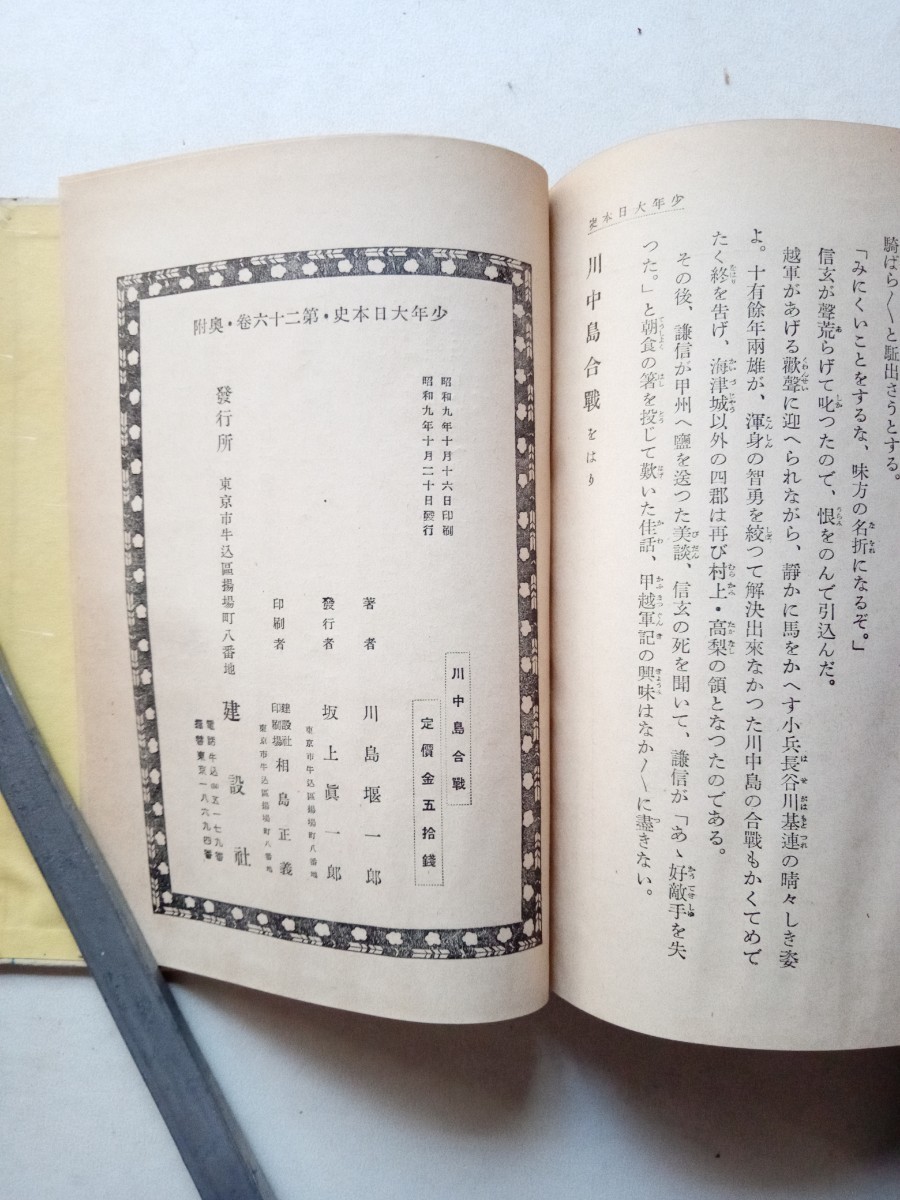 騎ばら〱と駈出さうとする。
「みにくいことをするな、味方の名折になるぞ。」
信玄が聲荒らげて叱つたので、恨をのんで引込んだ。
越軍があげる歡聲に迎へられながら、靜かに馬をかへす小兵長谷川基連の晴々しき姿
よ。十有餘年兩雄が、渾身の智勇を絞つて解決出來なかつた川中島の合戰もかくてめで
たく終を告げ、海津城以外の四郡は再び村上・高梨の領となつたのである。
その後、謙信が甲州へ鹽を送つた美談、信玄の死を聞いて、謙信が「あゝ好敵手を失
つた。」と朝食の箸を投じて歎いた佳話、甲越軍記の興味はなか〱に盡きない。
川中島合戰をはり
少年大日本史
少年大日本史・第二十六卷・奧附
川中島合戰
定價金五拾錢
昭和九年十月十六日印刷
昭和九年十月二十日發行
著者 川島堰一郎
發行者 坂上眞一郎
東京市牛込區揚場町八番地
印刷者 建設社印刷場 相島正義
東京市牛込區揚場町八番地
發行所 東京市牛込區揚場町八番地 建設社
電話牛込五一七九番
振替東京一八六九四番